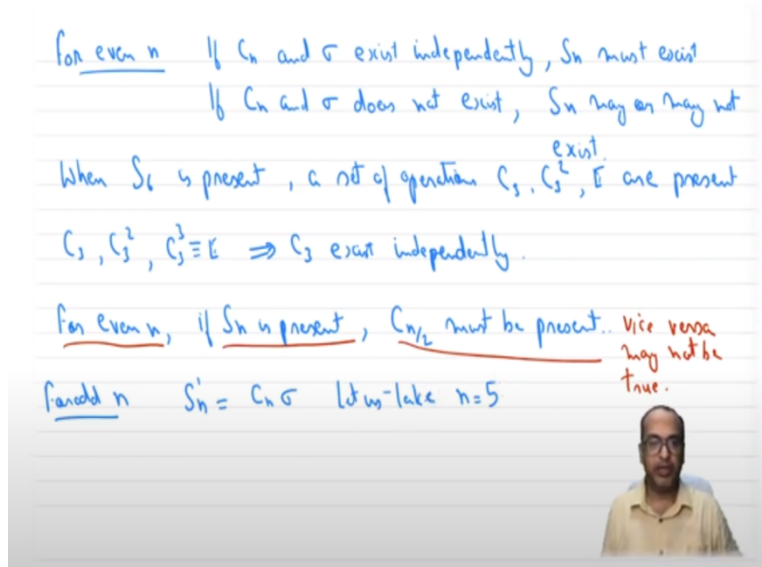 For even n If Cn and σ exist independently, Sn must exist
If Cn and σ does not exist, Sn may or may not
exist.
When S6 is present, a set of operations C3, C3², E are present
C3, C3², C3³ ≡ E ⇒ C3 exist independently.
For even n, if Sn is present, Cn/2 must be present.. vice versa
may not be
true.
For odd n Sn¹ = Cn σ Let us take n=5